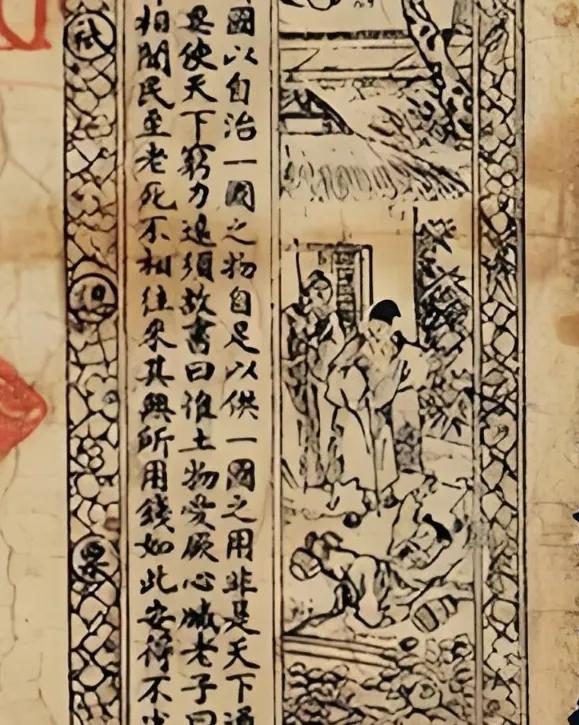 國以自治一國之物自足以供一國之用非是天下通
使天下窮力遠須故書曰惟土物愛厥心臧老子曰
相聞民至老死不相往來其興所用錢如此安得不少
票